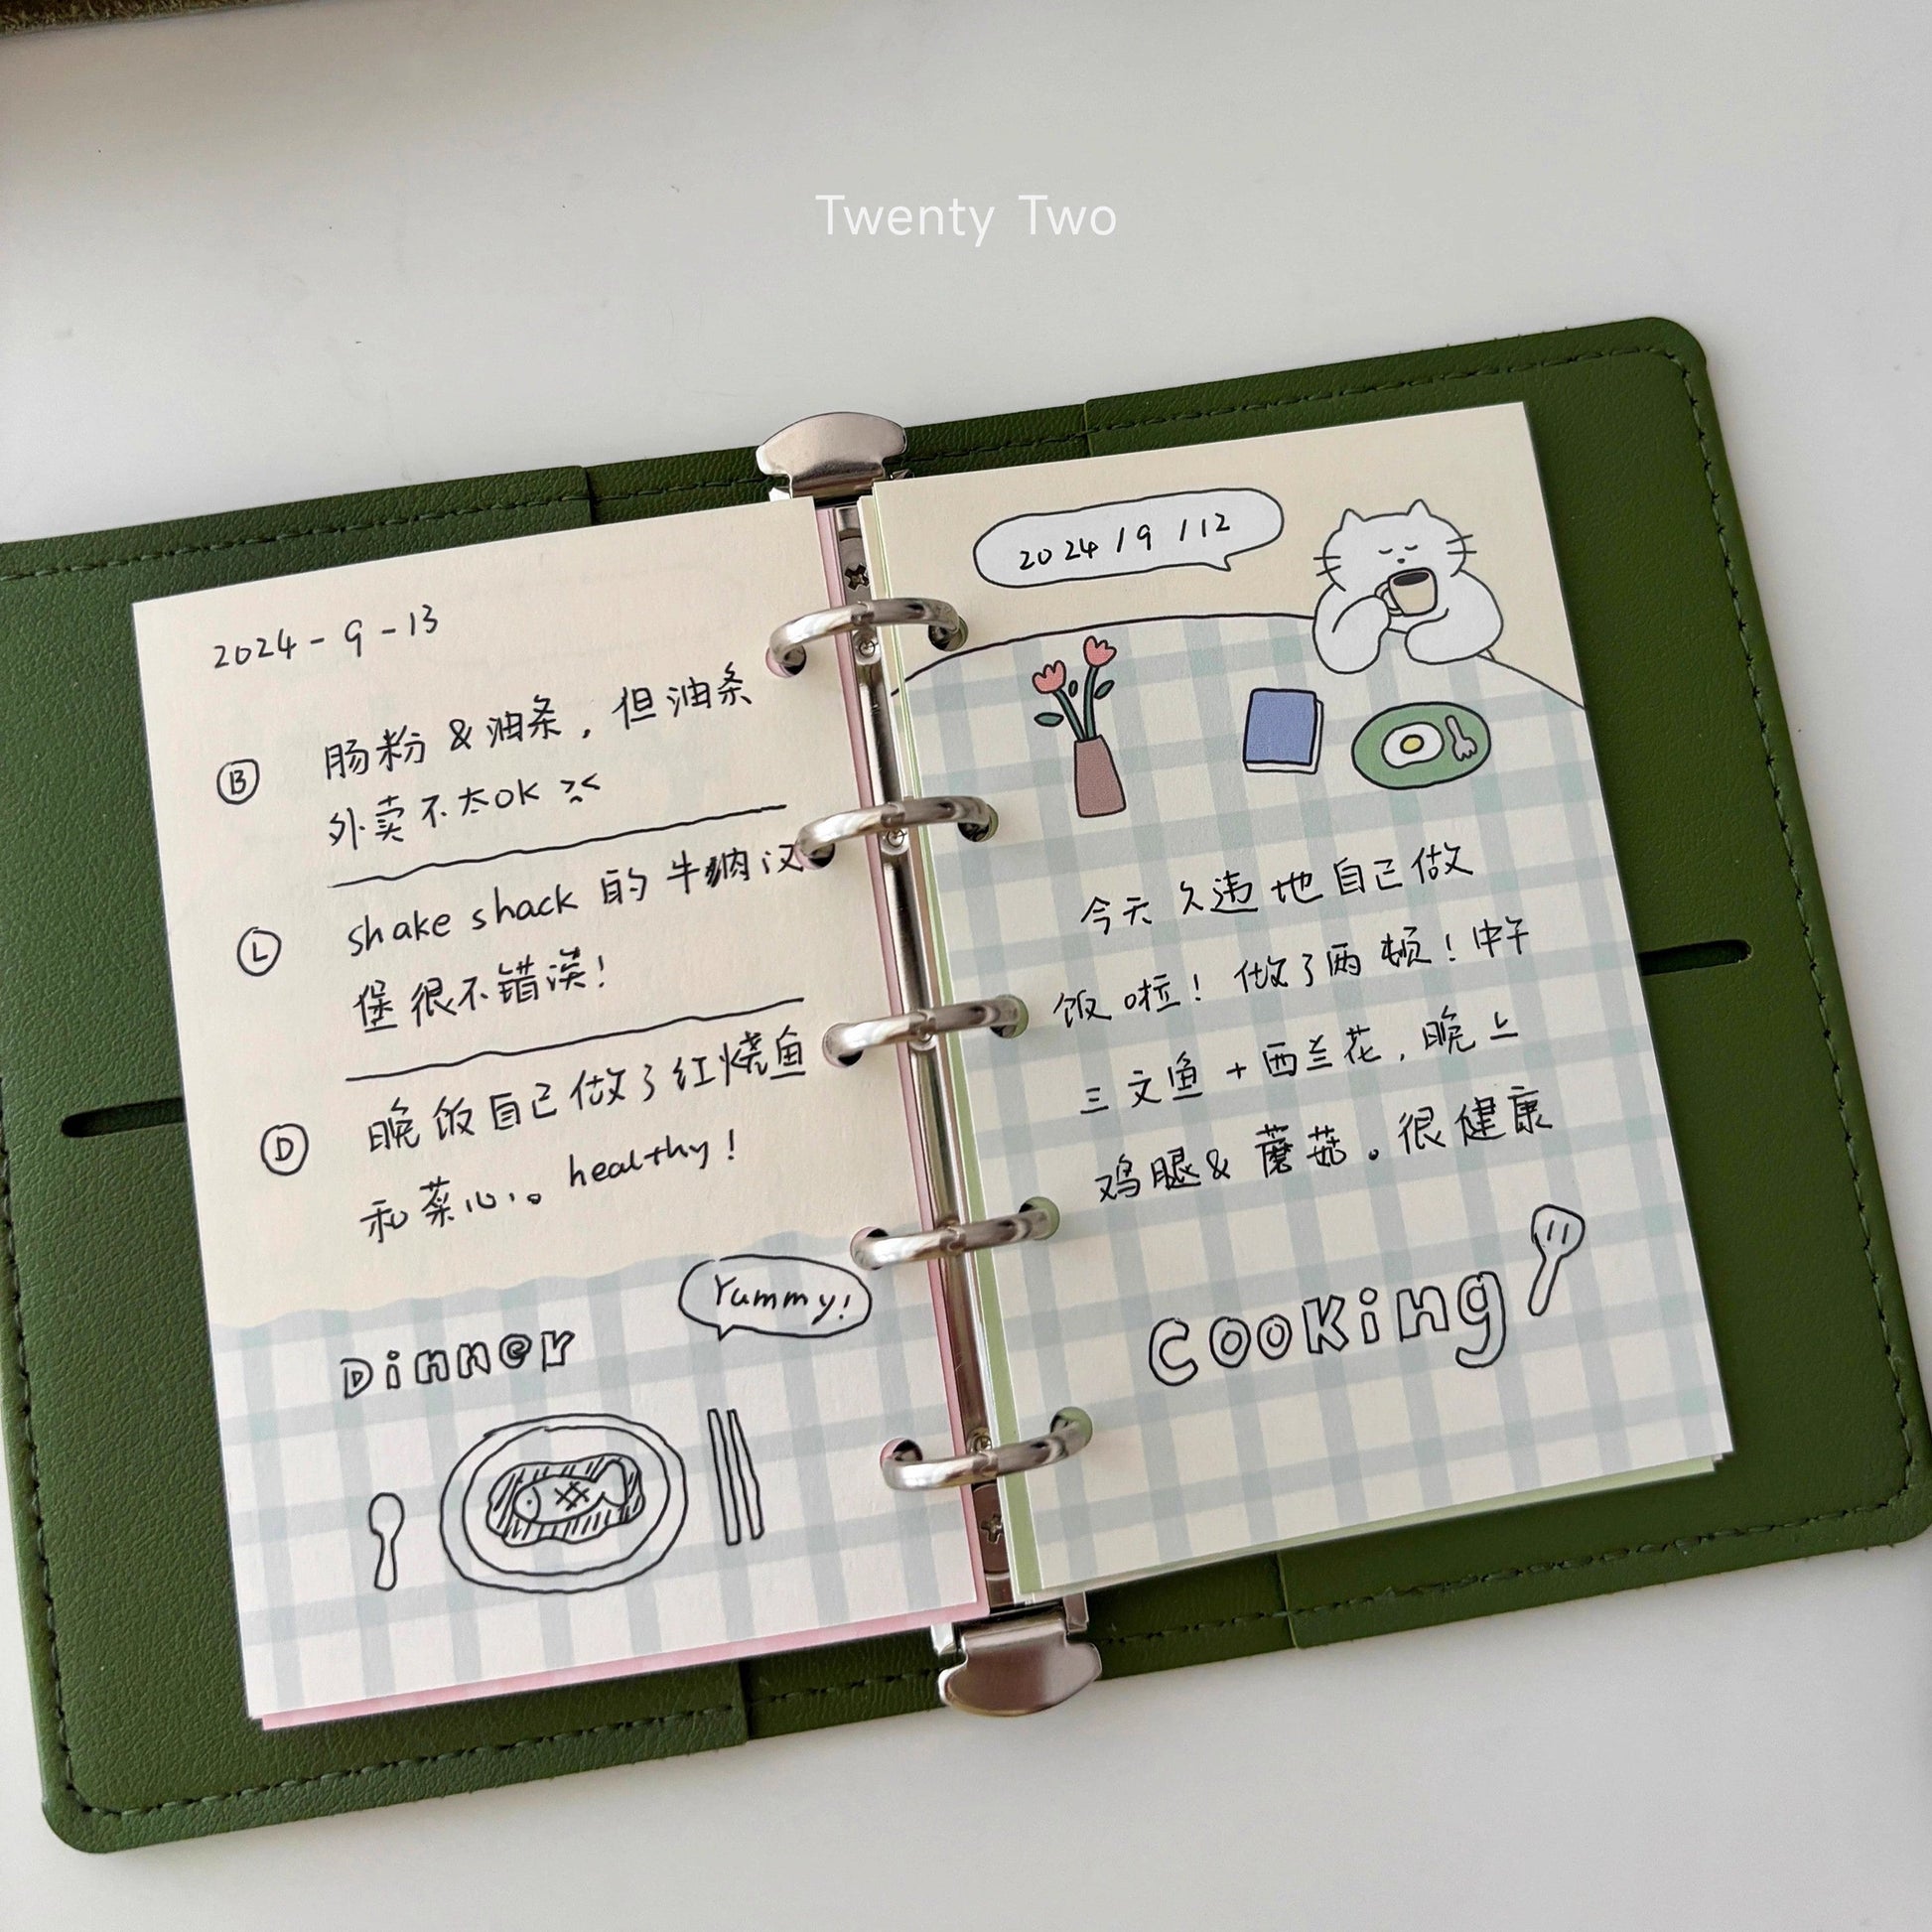 Twenty Two
2024-9-13
Ⓑ 肠粉 & 油条，但油条
外卖不太OK
Ⓛ shake shack 的 牛 汉
堡很不错诶！
Ⓓ 晚饭自己做了红烧鱼
和菜心。healthy！
Yummy!
Dinner
2024/9/12
今天久违地自己做
饭啦！做了两顿！中午
三文鱼+西兰花，晚上
鸡腿&蘑菇。很健康
Cooking